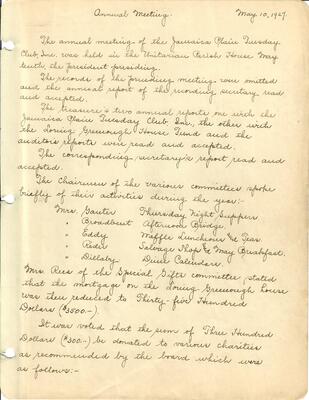 Annual Meeting. May 10, 1927.
The annual meeting of the Jamaica Plain Tuesday
Club, Inc. was held in the Unitarian Parish House May
tenth, the president presiding.
The records of the preceding meetings were omitted
and the annual report of the recording secretary read
and accepted.
The treasurer's two annual reports one with the
Jamaica Plain Tuesday Club Inc., the other with
the Loring Greenough House Fund and the
auditors reports were read and accepted.
The corresponding secretary's report read and
accepted.
The Chairmen of the various committees spoke
briefly of their activities during the year:-
Mrs. Gauter Thursday Night Suppers
" Broadbent Afternoon Bridge.
" Eddy Waffle Luncheons & Teas.
" Salvage Shop & May Breakfast.
" Dillaby Dime Calendars.
Mrs. Rees of the Special Gifts committee stated
that the mortgage on the Loring Greenough house
was then reduced to Thirty-five Hundred
Dollars ($3500.-)
It was voted that the sum of Three Hundred
Dollars ($300.-) be donated to various charities
as recommended by the board which were
as follows:-